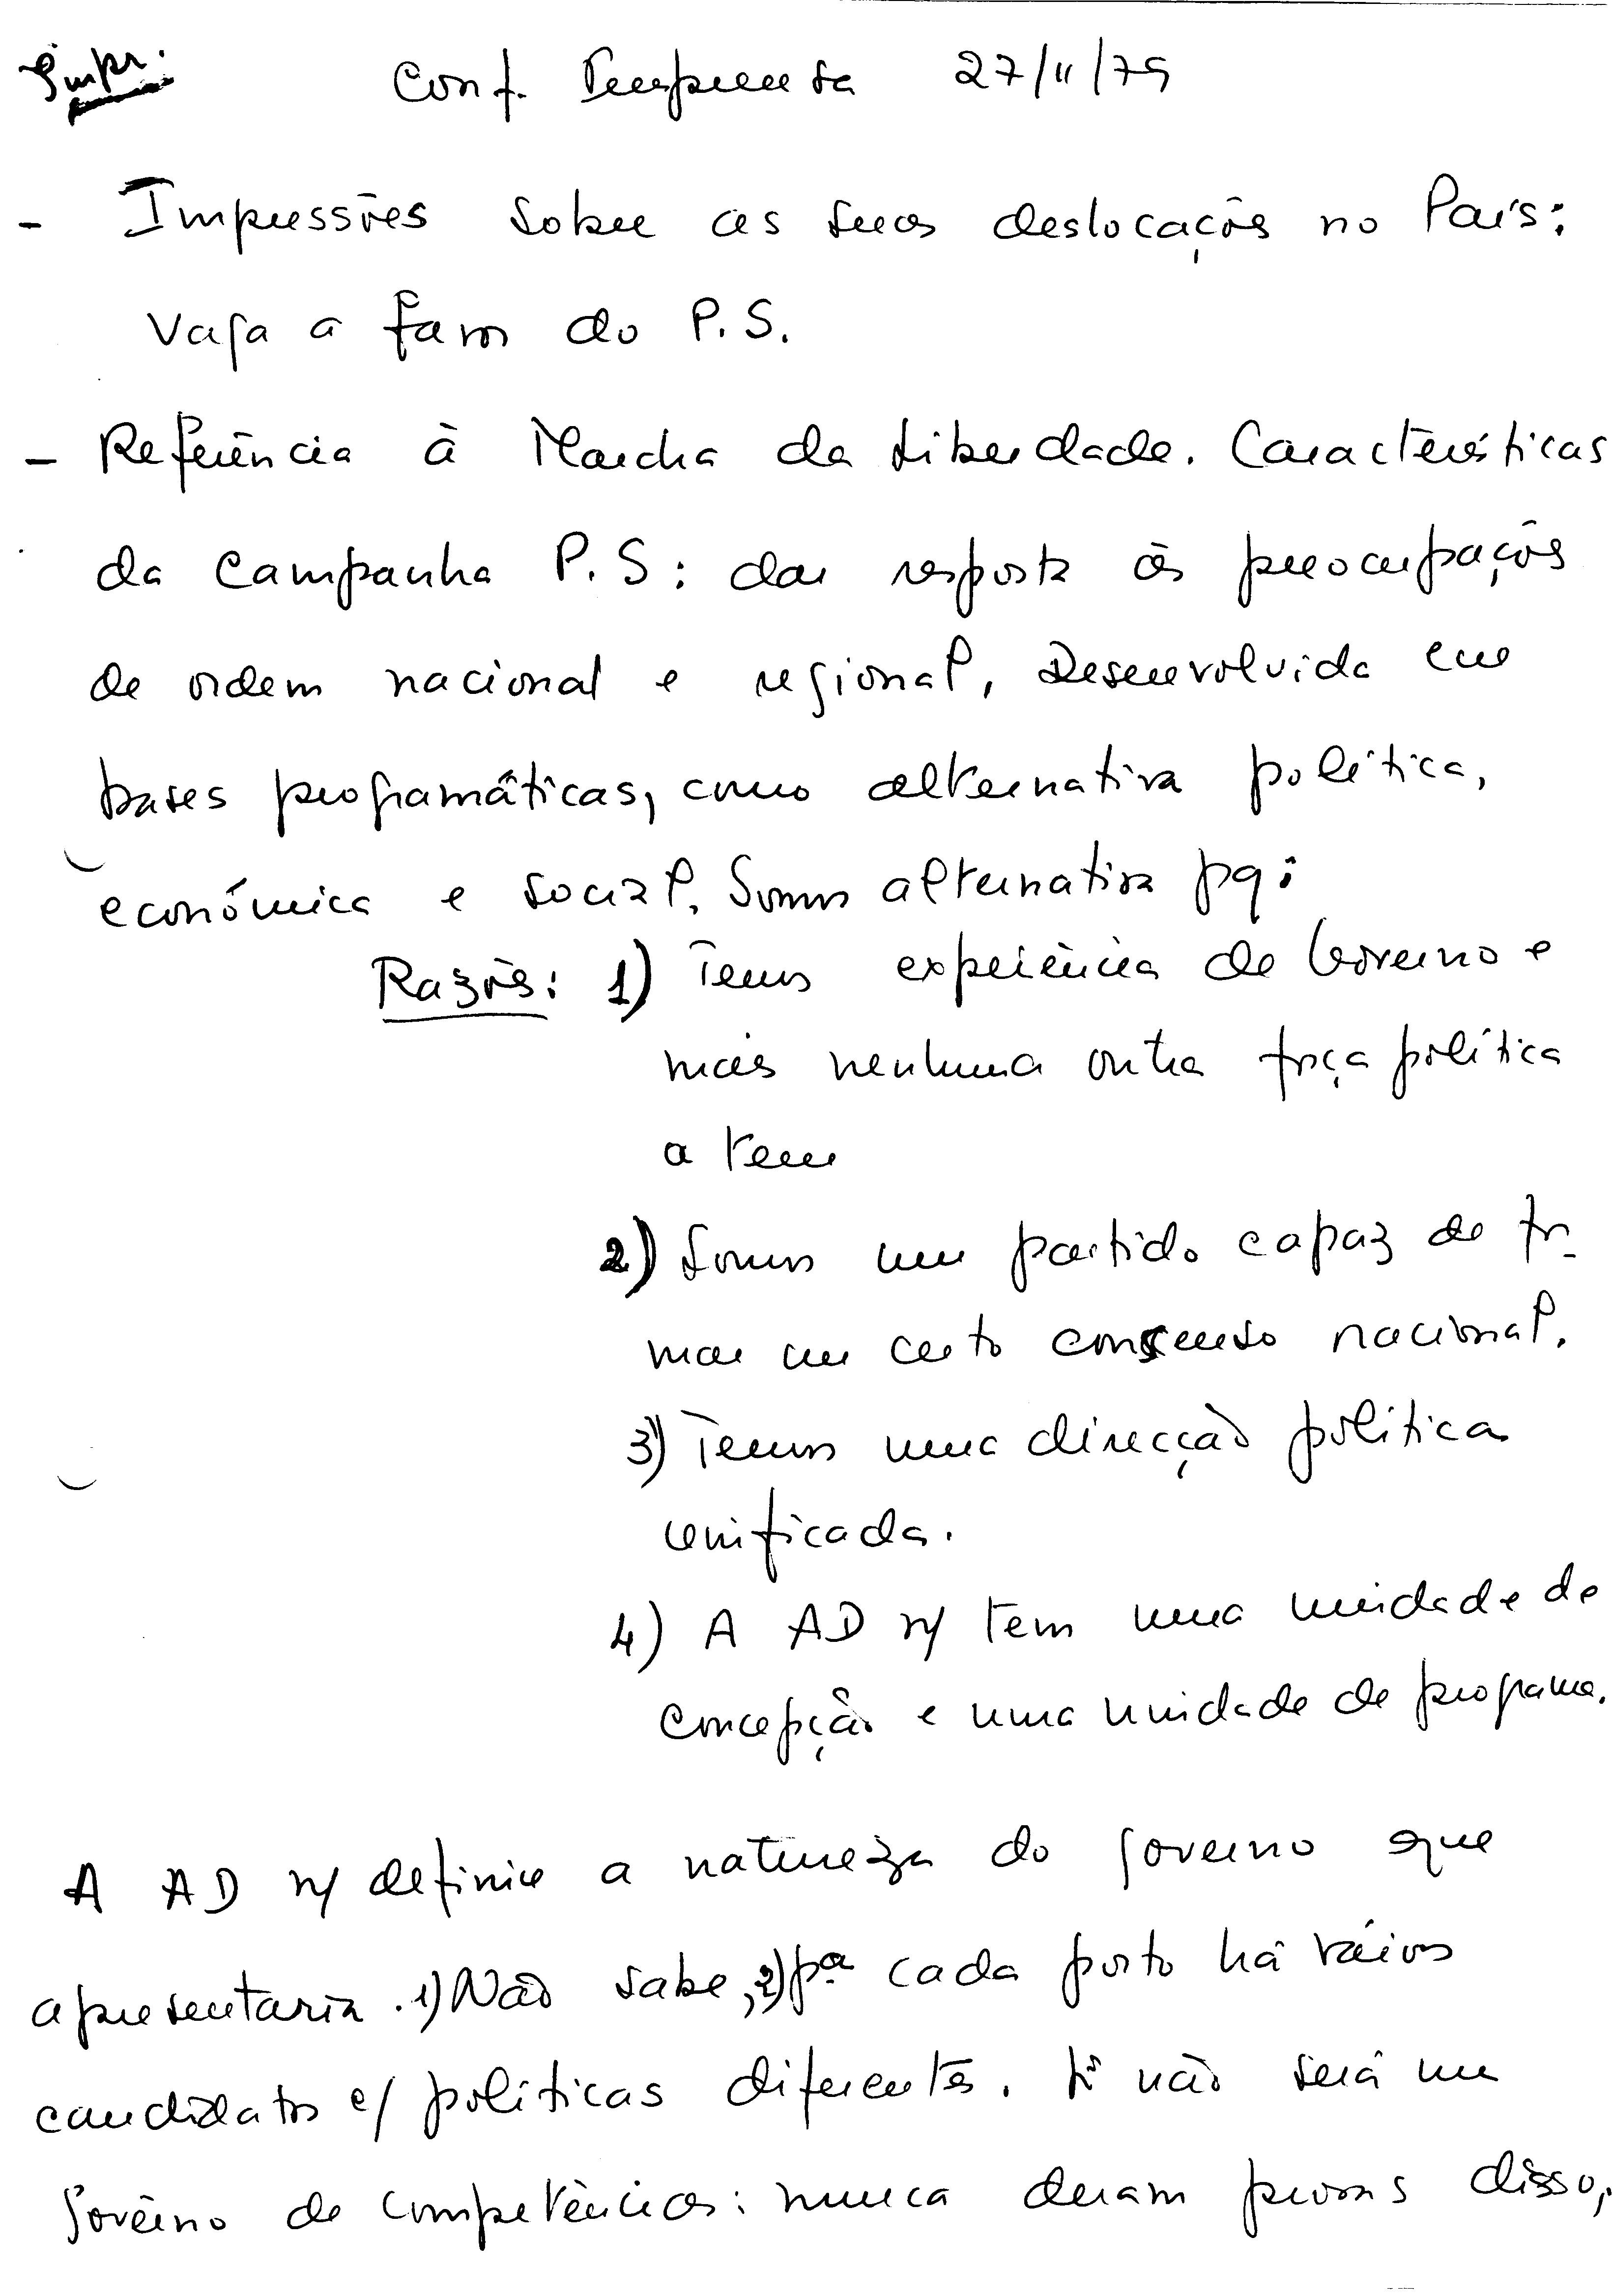 Impr.
Conf. Imprensa 27/11/79
- Impressões sobre as suas deslocações no País:
Vaga a favor do P.S.
- Referência à Marcha da Liberdade. Características
da Campanha P.S: dar resposta às preocupações
de ordem nacional e regional, Desenvolvida em
bases programáticas, como alternativa política,
económica e social. Somos alternativa pq:
Razões: 1) Temos experiência de Governo e
mais nenhuma outra força política
a tem
2) Somos um partido capaz de for-
mar um certo consenso nacional.
3) Temos uma direcção política
unificada.
4) A AD ñ/ tem uma unidade de
concepção e uma unidade de programa.
A AD ñ/ define a natureza do governo que
apresentaria. 1) Não sabe, 2) pª cada posto há vários
candidatos c/ políticas diferentes. não será um
Govêrno de competências: nunca deram provas disso,